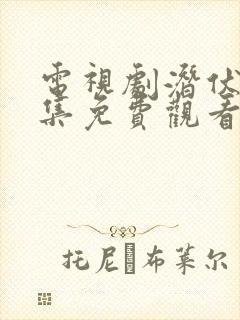 電視劇潛伏
集免費觀看
托尼·布萊尔